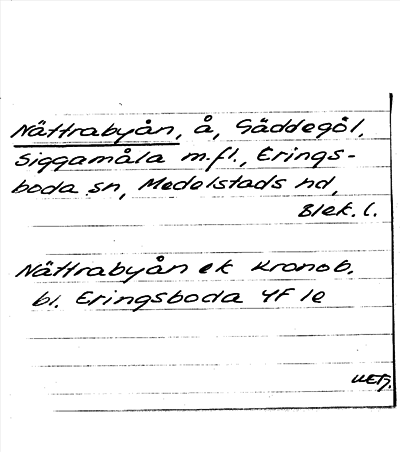 Nättrabyån, å, Gäddegöl,
Siggamåla m.fl., Erings-
boda sn, Medelstads hd,
Blek. l.
Nättrabyån ek Kronob.
bl. Eringsboda 4F 1e